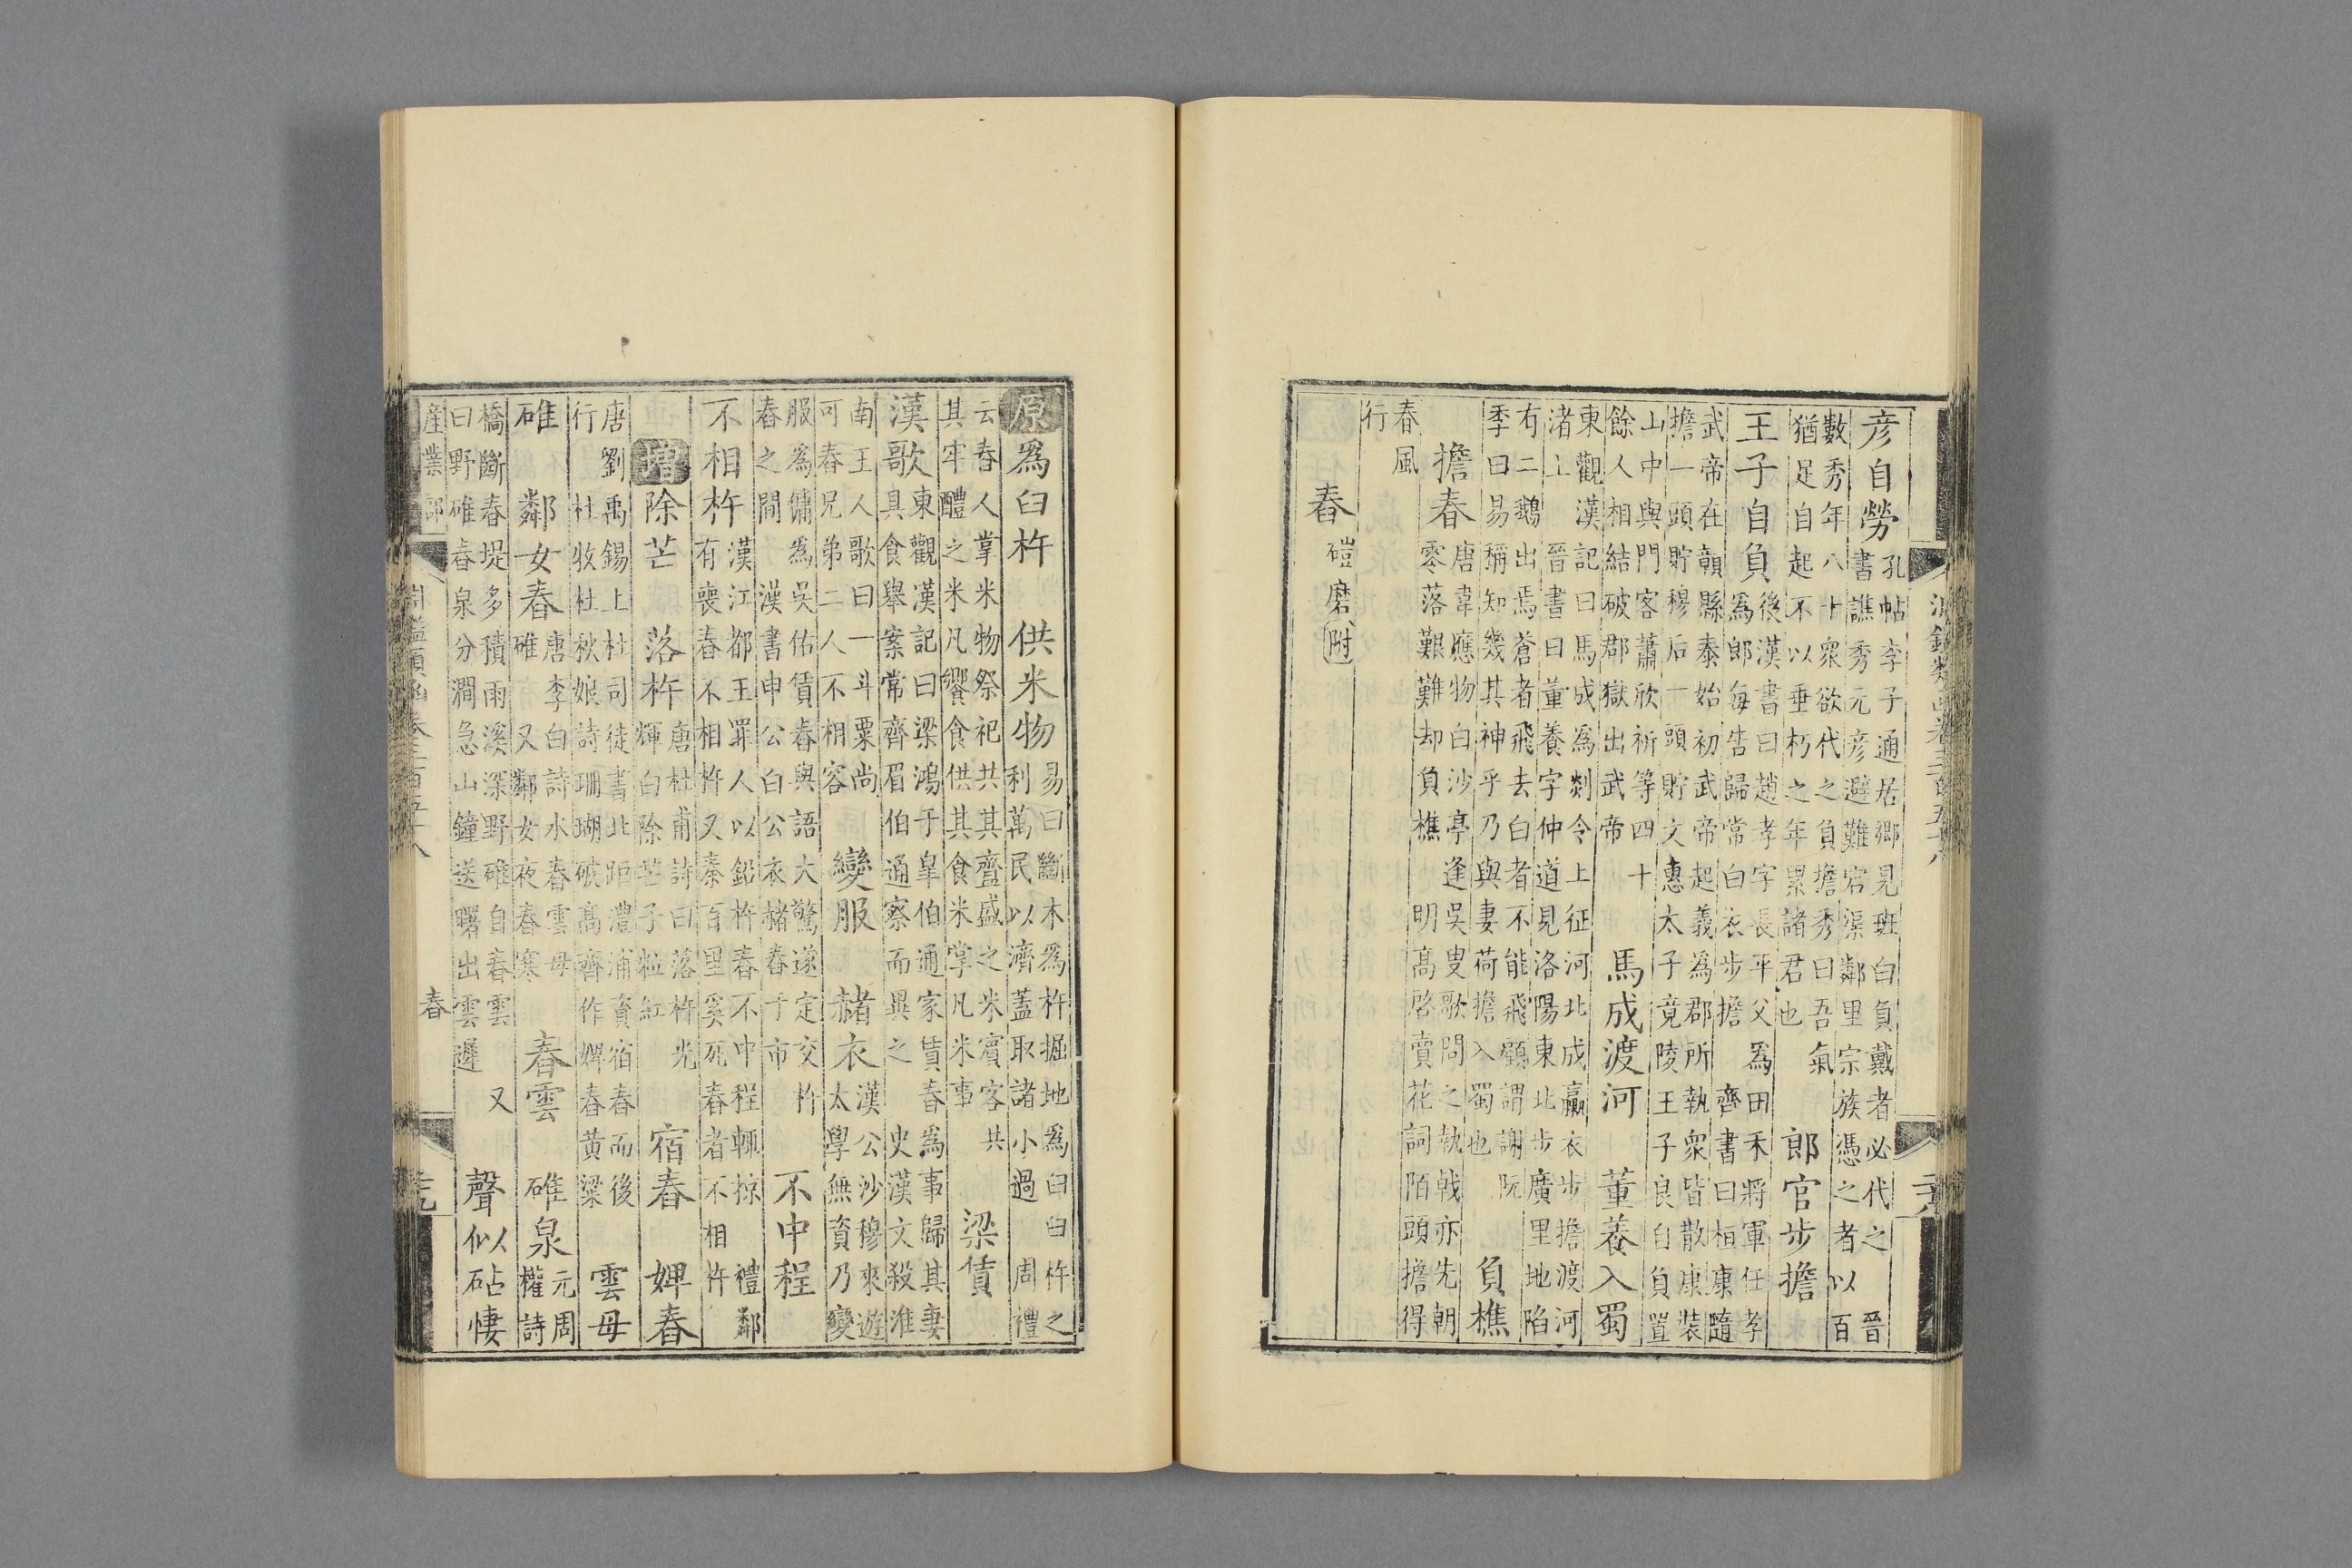 彥自勞
孔帖李子通居鄉見班白負戴者必代之　晉
書譙秀元彥避難宕渠鄰里宗族憑之者以百
數秀年八十衆欲代之負擔秀曰吾氣
猶足自起不以垂朽之年累諸君也
郎官步擔
王子自負
後漢書曰趙孝字長平父爲田禾將軍任孝
爲郎每告歸常白衣步擔　齊書曰桓康隨
武帝在贛縣泰始初武帝起義爲郡所執衆皆散康裝
擔一頭貯穆后一頭貯文惠太子竟陵王子良自負置
山中與門客蕭欣祈等四十
餘人相結破郡獄出武帝
馬成渡河　董養入蜀
東觀漢記曰馬成爲剡令上征河北成羸衣步擔渡河
渚上　晉書曰董養字仲道見洛陽東北步廣里地陷
有二鵝出焉蒼者飛去白者不能飛顧謂謝阮
季曰易稱知幾其神乎乃與妻荷擔入蜀也
負樵
擔舂
唐韋應物白沙亭逢吳叟歌問之執戟亦先朝
零落艱難却負樵　明高啓賣花詞陌頭擔得
春風
行
舂　磑磨附
原爲臼杵　供米物
易曰斷木爲杵掘地爲臼臼杵之
利萬民以濟蓋取諸小過　周禮
云舂人掌米物祭祀共其齍盛之米賓客共
其牢醴之米凡饗食供其食米掌凡米事
梁賃
漢歌
東觀漢記曰梁鴻于皐伯通家賃舂爲事歸其妻
具食舉案常齊眉伯通察而異之　史漢文殺淮
南王人歌曰一斗粟尚
可舂兄弟二人不相容
變服　赭衣
漢公沙穆來遊
太學無資乃變
服爲傭爲吳佑賃舂與語大驚遂定交杵
舂之間　漢書申公白公衣赭舂于市
不中程
不相杵
漢江都王罪人以鉛杵舂不中程輒掠　禮鄰
有喪舂不相杵又秦百里奚死舂者不相杵
增除芒　落杵
唐杜甫詩曰落杵光
輝白除芒子粒紅
宿舂　婢舂
唐劉禹錫上杜司徒書北距澧浦資宿舂而後
行　杜牧杜秋娘詩珊瑚破高齊作婢舂黃粱
雲母
碓　鄰女舂
唐李白詩水舂雲母
碓　又鄰女夜舂寒
舂雲　碓泉
元周
權詩
橋斷春堤多積雨溪深野碓自舂雲　又
曰野碓舂泉分澗急山鐘送曙出雲遲
聲似砧悽
產業部
舂